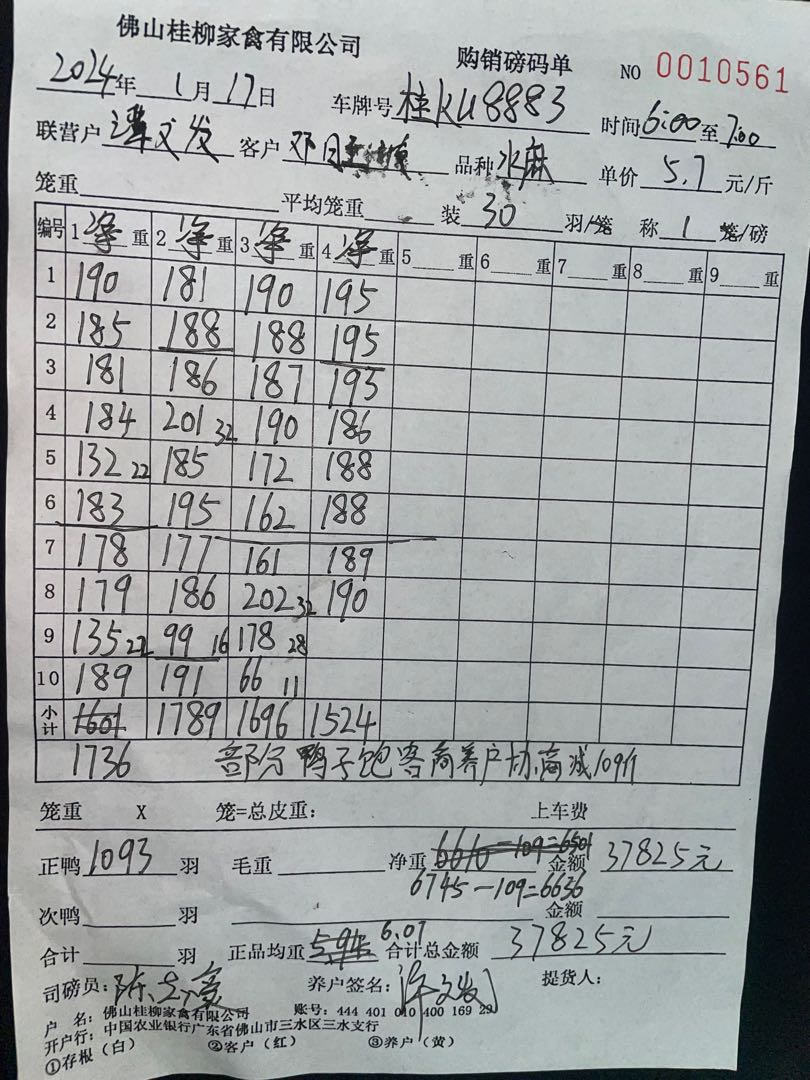 佛山桂柳家禽有限公司 购销磅码单 NO 0010561
2024年 1月17日 车牌号 桂KU8883 时间6:00至7:00
联营户 发 客户 邓 品种 水麻 单价 5.7 元/斤
笼重 平均笼重 装 30 羽/笼 称 1 笼/磅
编号 1净重 2净重 3净重 4净重 5 重 6 重 7 重 8 重 9 重
1 190 181 190 195
2 185 188 188 195
3 181 186 187 193
4 184 201 32 190 186
5 132 22 185 172 188
6 183 195 162 188
7 178 177 161 189
8 179 186 202 32 190
9 135 22 99 16 178 28
10 189 191 66 11
小计 1601 1789 1696 1524
1736 部分鸭子饱客商养户协商减109斤
笼重 X 笼=总皮重: 上车费
6610-109=6501
正鸭 1093 羽 毛重 净重 金额 37825元
6745-109=6636
次鸭 羽 金额
6.07
合计 羽 正品均重 5.94 合计总金额 37825元
司磅员: 陈 养户签名: 发 提货人:
户 名: 佛山桂柳家禽有限公司 账号: 444 401 010 400 169 29
开户行: 中国农业银行广东省佛山市三水区三水支行
①存根(白) ②客户(红) ③养户(黄)